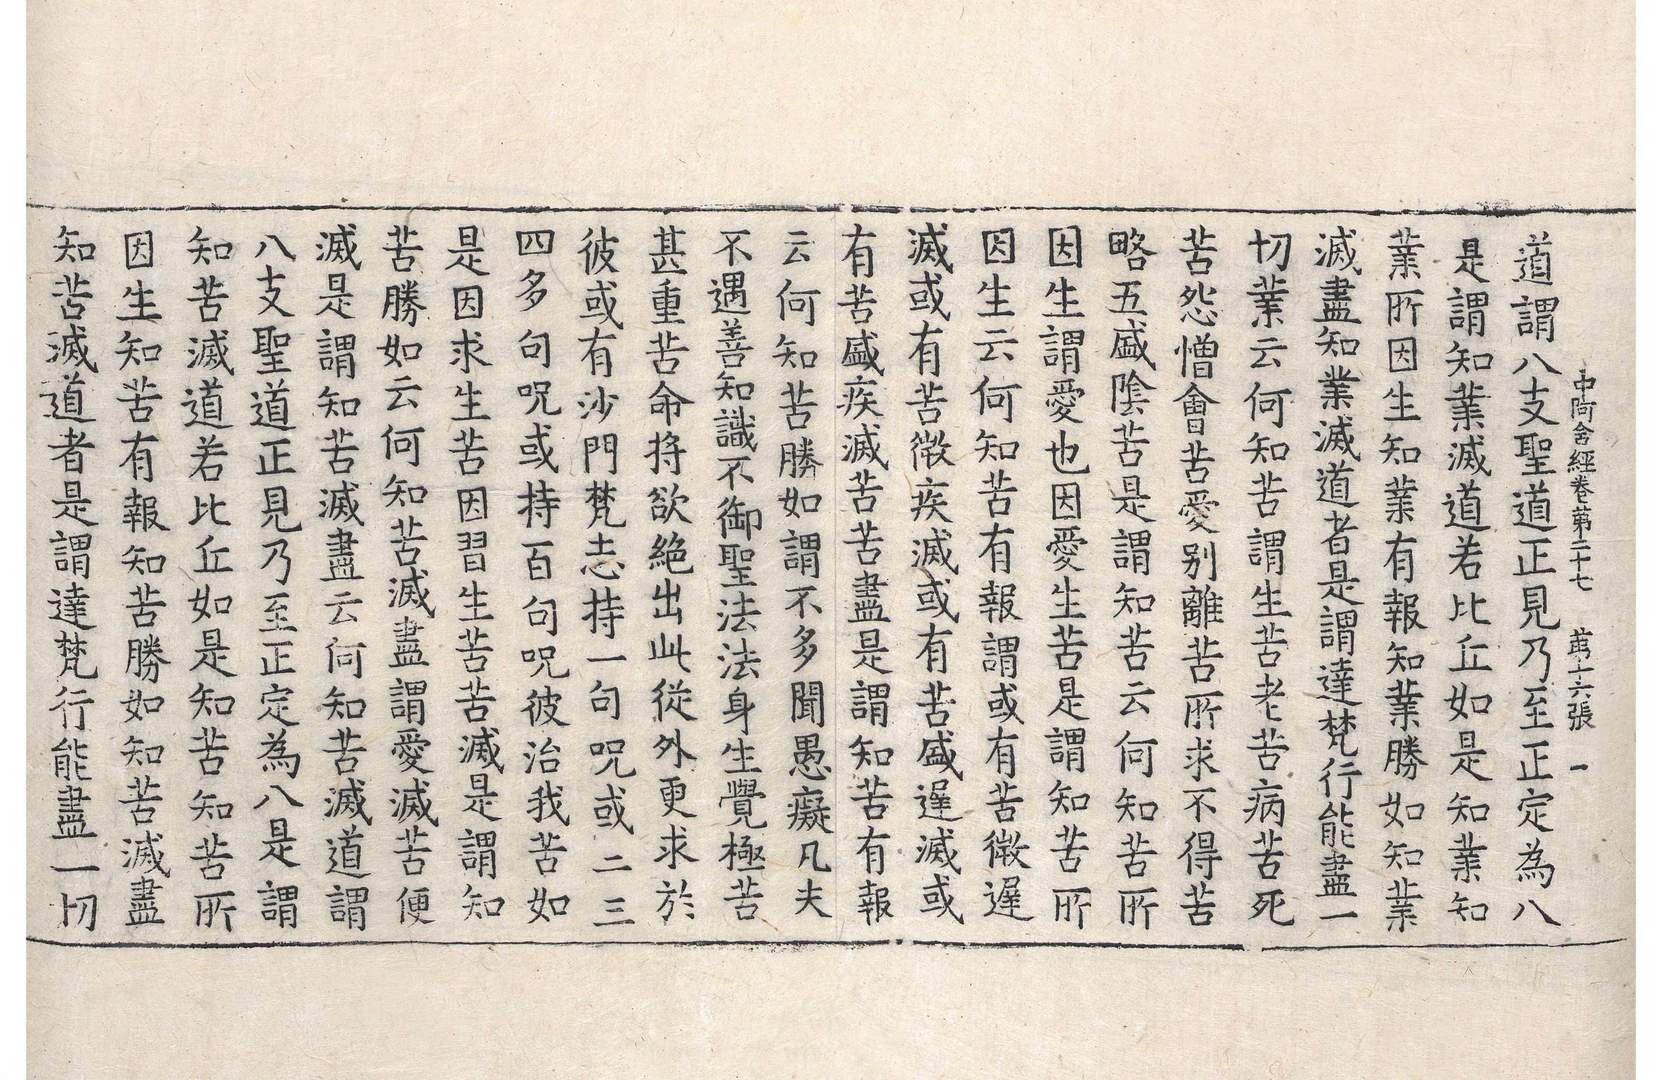 中阿含經卷第二十七　第十六張　一
道謂八支聖道正見乃至正定為八
是謂知業滅道若比丘如是知業知
業所因生知業有報知業勝如知業
滅盡知業滅道者是謂達梵行能盡一
切業云何知苦謂生苦老苦病苦死
苦怨憎會苦愛別離苦所求不得苦
略五盛陰苦是謂知苦云何知苦所
因生謂愛也因愛生苦是謂知苦所
因生云何知苦有報謂或有苦微遲
滅或有苦微疾滅或有苦盛遲滅或
有苦盛疾滅苦苦盡是謂知苦有報
云何知苦勝如謂不多聞愚癡凡夫
不遇善知識不御聖法法身生覺極苦
甚重苦命將欲絕出此從外更求於
彼或有沙門梵志持一句呪或二三
四多句呪或持百句呪彼治我苦如
是因求生苦因習生苦苦滅是謂知
苦勝如云何知苦滅盡謂愛滅苦便
滅是謂知苦滅盡云何知苦滅道謂
八支聖道正見乃至正定為八是謂
知苦滅道若比丘如是知苦知苦所
因生知苦有報知苦勝如知苦滅盡
知苦滅道者是謂達梵行能盡一切